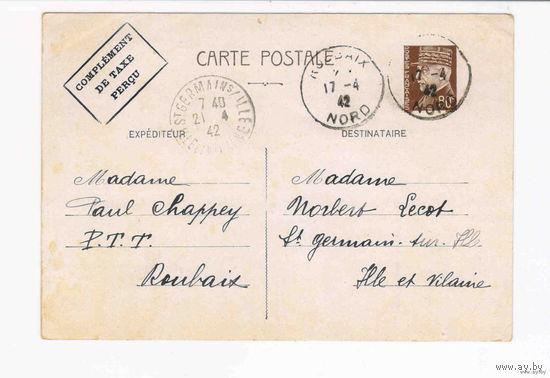 COMPLÉMENT
DE TAXE
PERÇU
CARTE POSTALE
ROUBAIX
17 -4
42
NORD
-4
42
NORD
80
ST GERMAIN S/ ILLE
7 40
21 4
42
EXPÉDITEUR
DESTINATAIRE
Madame
Paul Chappey
P.T.T.
Roubaix
Madame
Norbert Lecot
St germain-sur-Ille
Ille et Vilaine
www.ay.by